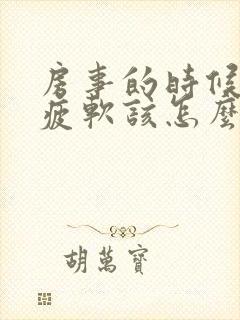 房事的時候
疲軟該怎麼
胡萬寶